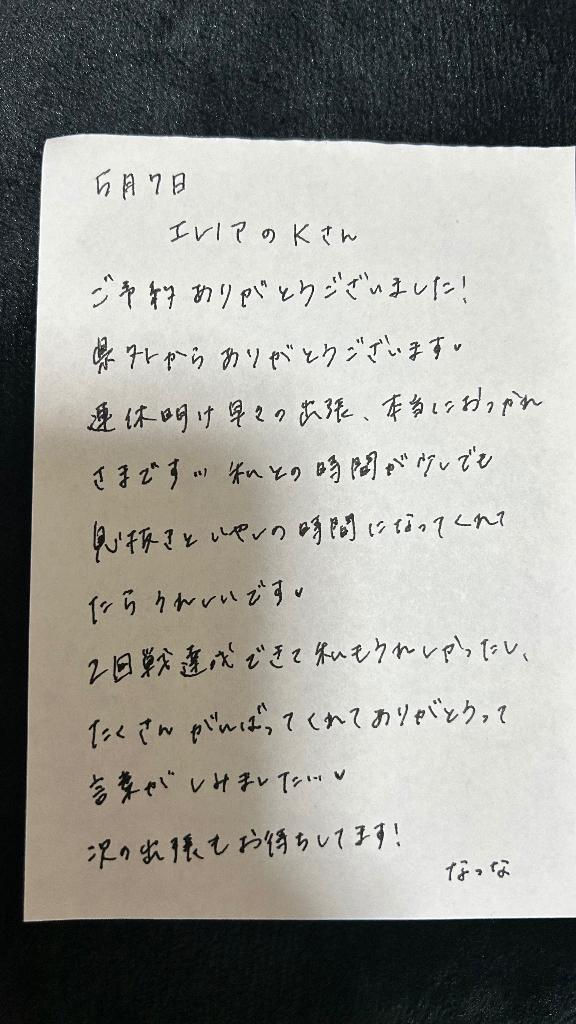 5月7日
エレノアのKさん
ご予約ありがとうございました!
県外からありがとうございます♥
連休明け早々の出張、本当におつかれ
さまです… 私との時間が少しでも
息抜きといやしの時間になってくれて
たらうれしいです♥
2回戦達成できて私もうれしかったし、
たくさんがんばってくれてありがとうって
言葉がしみました…♥
次の出張もお待ちしてます!
なつな